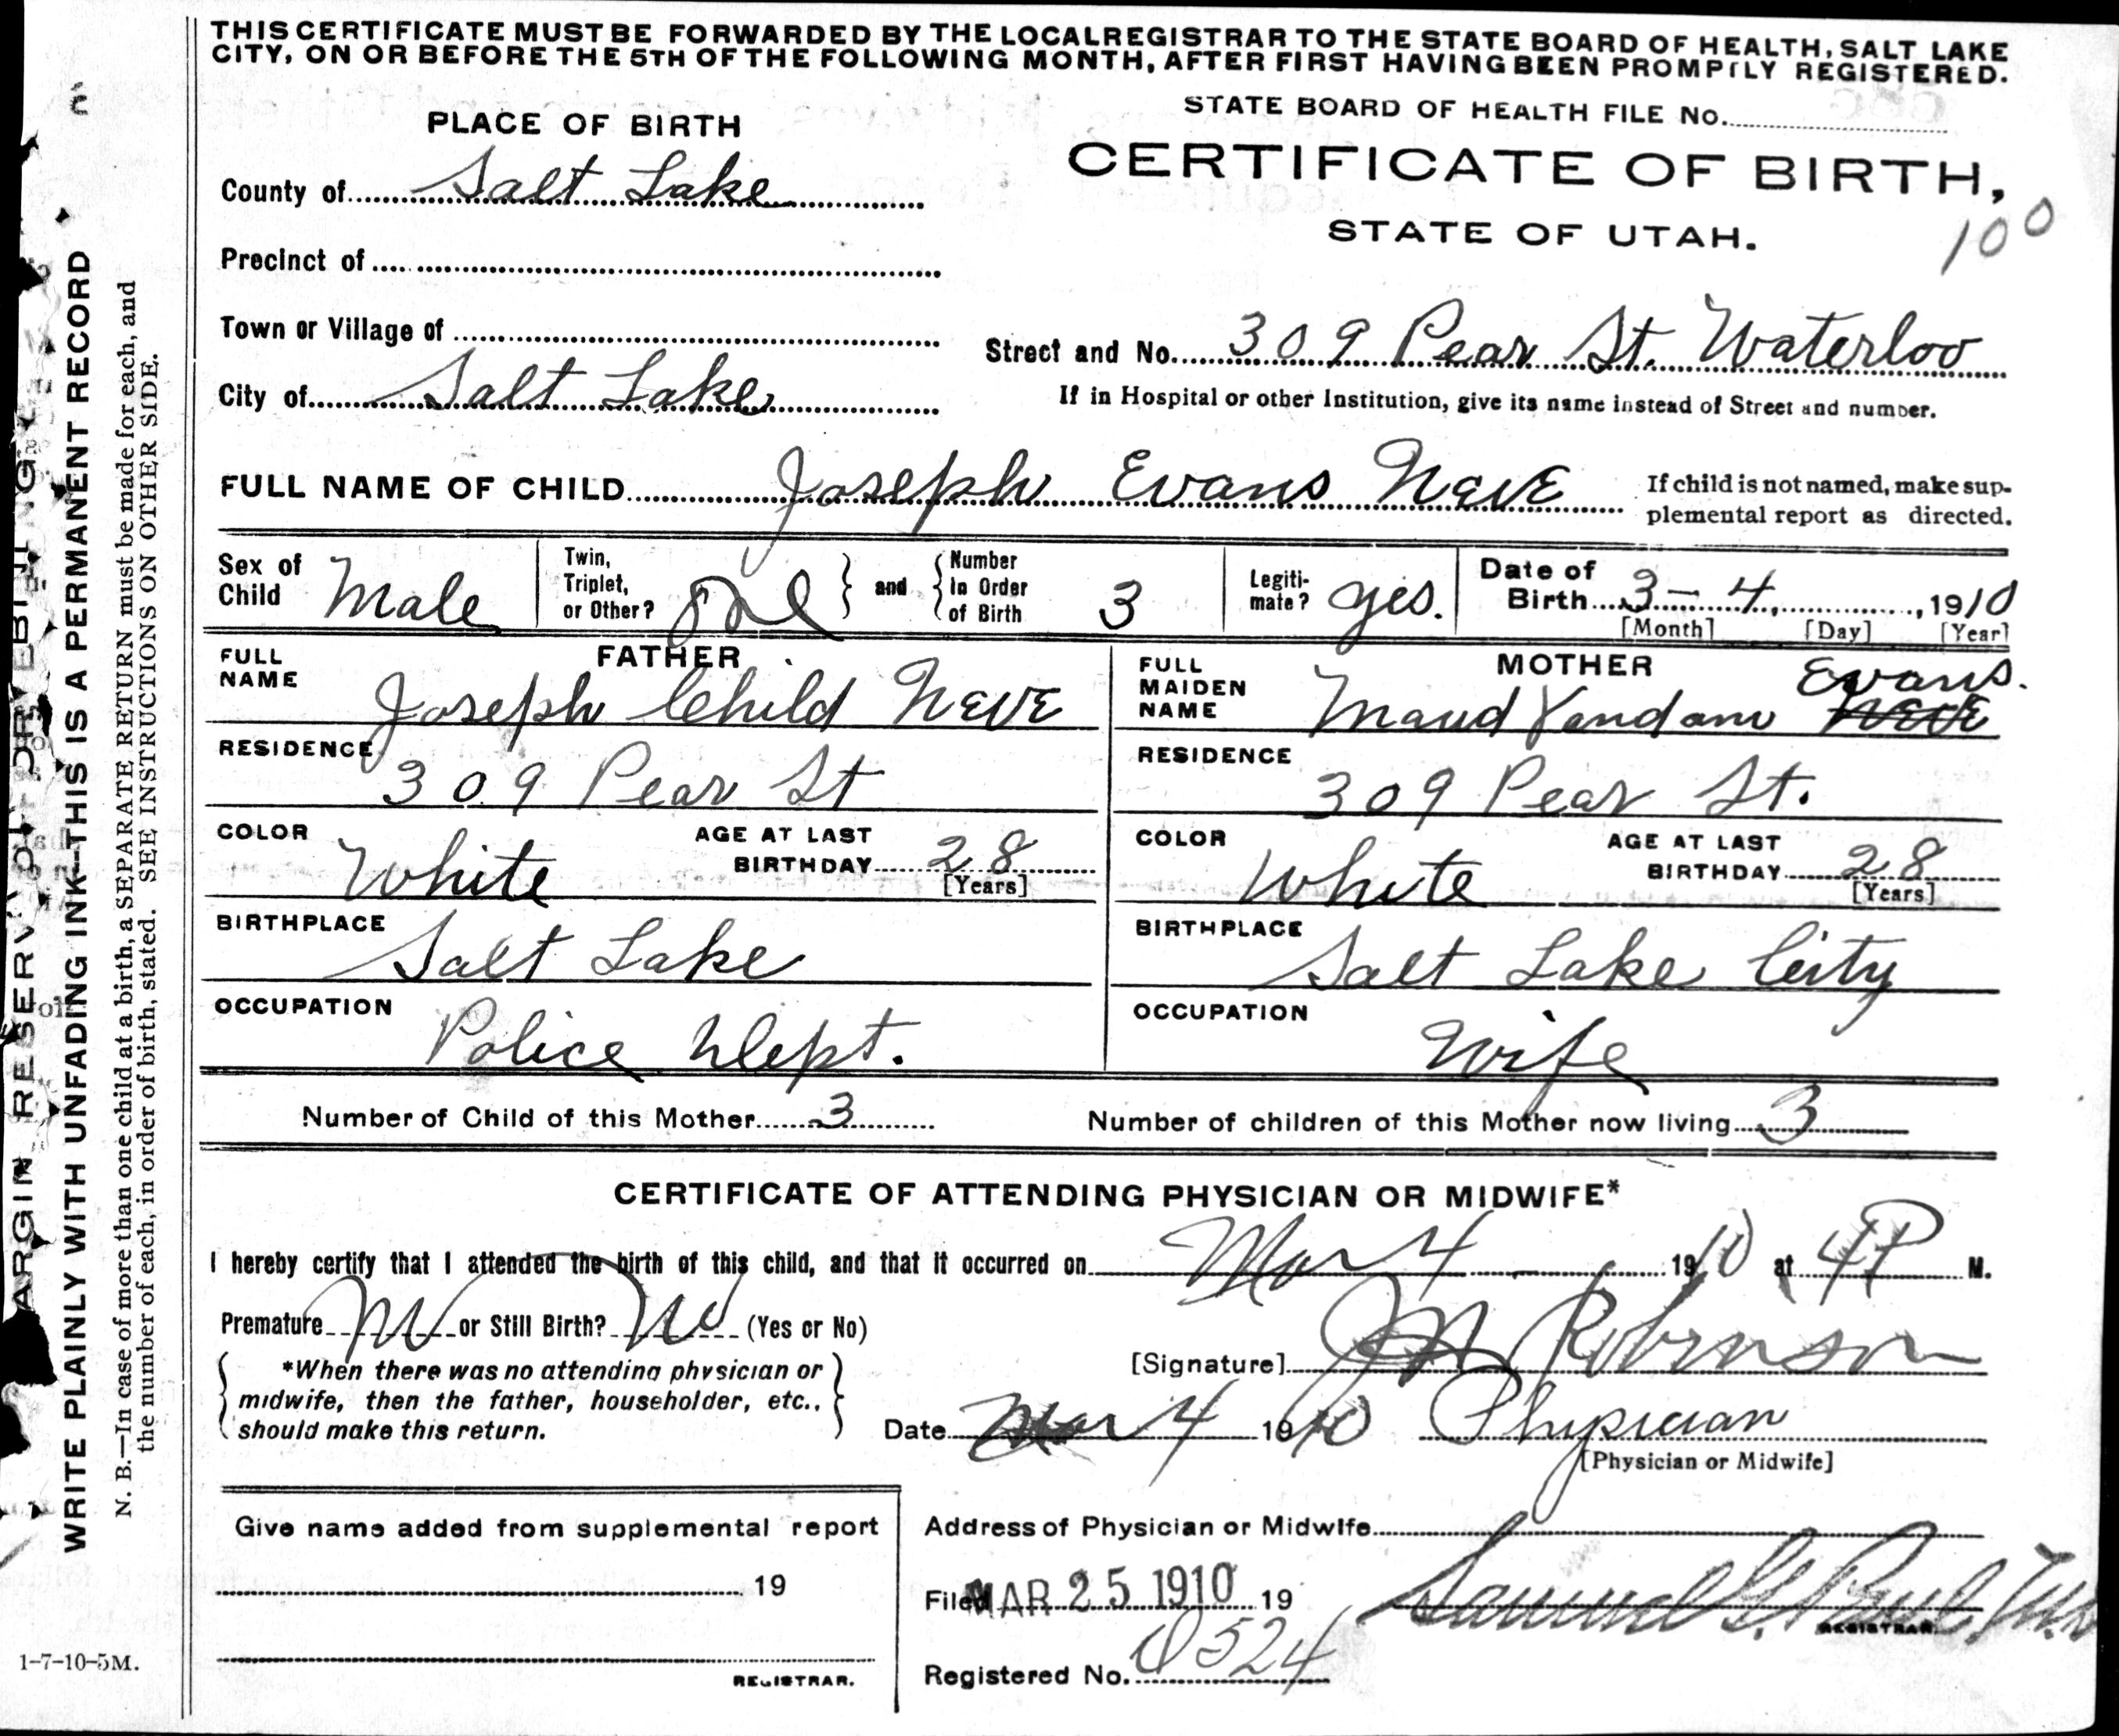 THIS CERTIFICATE MUST BE FORWARDED BY THE LOCALREGISTRAR TO THE STATE BOARD OF HEALTH, SALT LAKE
CITY, ON OR BEFORE THE 5TH OF THE FOLLOWING MONTH, AFTER FIRST HAVING BEEN PROMPTLY REGISTERED.
STATE BOARD OF HEALTH FILE No.
PLACE OF BIRTH
CERTIFICATE OF BIRTH,
STATE OF UTAH.
100
County of Salt Lake
Precinct of
Town or Village of
Street and No. 309 Pear St. Waterloo
City of Salt Lake
If in Hospital or other Institution, give its name instead of Street and number.
FULL NAME OF CHILD Joseph Evans Neve
If child is not named, make sup-
plemental report as directed.
Sex of Child Male
Twin, Triplet, or Other? and Number In Order of Birth 3
Legiti-mate? yes.
Date of Birth 3 - 4, 1910
[Month] [Day] [Year]
FATHER
FULL NAME Joseph Child Neve
MOTHER
FULL MAIDEN NAME Maud Vandam Neve Evans.
RESIDENCE 309 Pear St
RESIDENCE 309 Pear St.
COLOR White AGE AT LAST BIRTHDAY 28 [Years]
COLOR White AGE AT LAST BIRTHDAY 28 [Years]
BIRTHPLACE Salt Lake
BIRTHPLACE Salt Lake City
OCCUPATION Police Dept.
OCCUPATION Wife
Number of Child of this Mother 3
Number of children of this Mother now living 3
CERTIFICATE OF ATTENDING PHYSICIAN OR MIDWIFE*
I hereby certify that I attended the birth of this child, and that it occurred on Mar 4 1910 at 4P M.
Premature No or Still Birth? No (Yes or No)
*When there was no attending physician or
midwife, then the father, householder, etc.,
should make this return.
[Signature] Robinson
Date Mar 4 1910 Physician
[Physician or Midwife]
Give name added from supplemental report
19
REGISTRAR.
Address of Physician or Midwife
Filed MAR 25 1910 19
Samuel G. Paul M.D
REGISTRAR.
Registered No. 524
1-7-10-5M.
WRITE PLAINLY WITH UNFADING INK—THIS IS A PERMANENT RECORD
N. B.—In case of more than one child at a birth, a SEPARATE RETURN must be made for each, and
the number of each, in order of birth, stated. SEE INSTRUCTIONS ON OTHER SIDE.